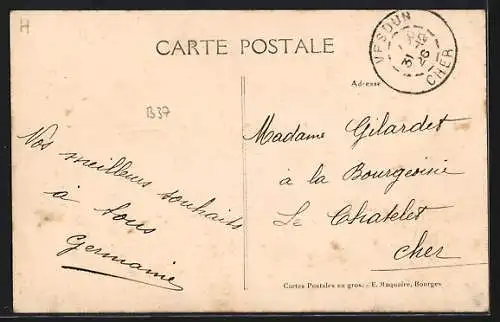 H
CARTE POSTALE
VESDUN
CHER
Adresse
B37
Vos meilleurs souhaits
à tous
Germaine
Madame Gilardet
à la Bourgeoisie
Le Chatelet
Cher
Cartes Postales en gros. - E. Maquaire, Bourges